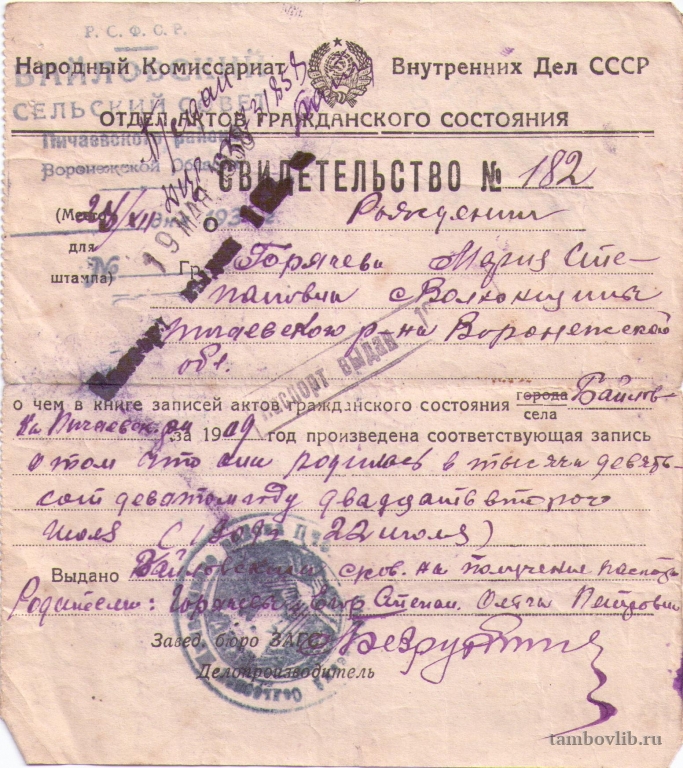 Р. С. Ф. С. Р.
БАЙЛОВСКИЙ
Народный Комиссариат Внутренних Дел СССР
СЕЛЬСКИЙ СОВЕТ
ОТДЕЛ АКТОВ ГРАЖДАНСКОГО СОСТОЯНИЯ
Пичаевского района
Воронежской Области
СВИДЕТЕЛЬСТВО № 182
(Место о Рождении
для
19 МАЯ 1938
штампа) № Гр. Горячева Мария Сте-
пановна с. Волхонщины
Пичаевского р-на Воронежской
обл.
ПАСПОРТ ВЫДАН
о чем в книге записей актов гражданского состояния города Байлов-
села
ка Пичаевск. за 1909 год произведена соответствующая запись
о том что она родилась в тысяча девять-
сот девятом году двадцать второго
июля (1909 г 22 июля)
Выдано Байловским на получение паспорта
Родители: Степан. Ольга Петровна
Завед. бюро ЗАГС
Делопроизводитель
tambovlib.ru